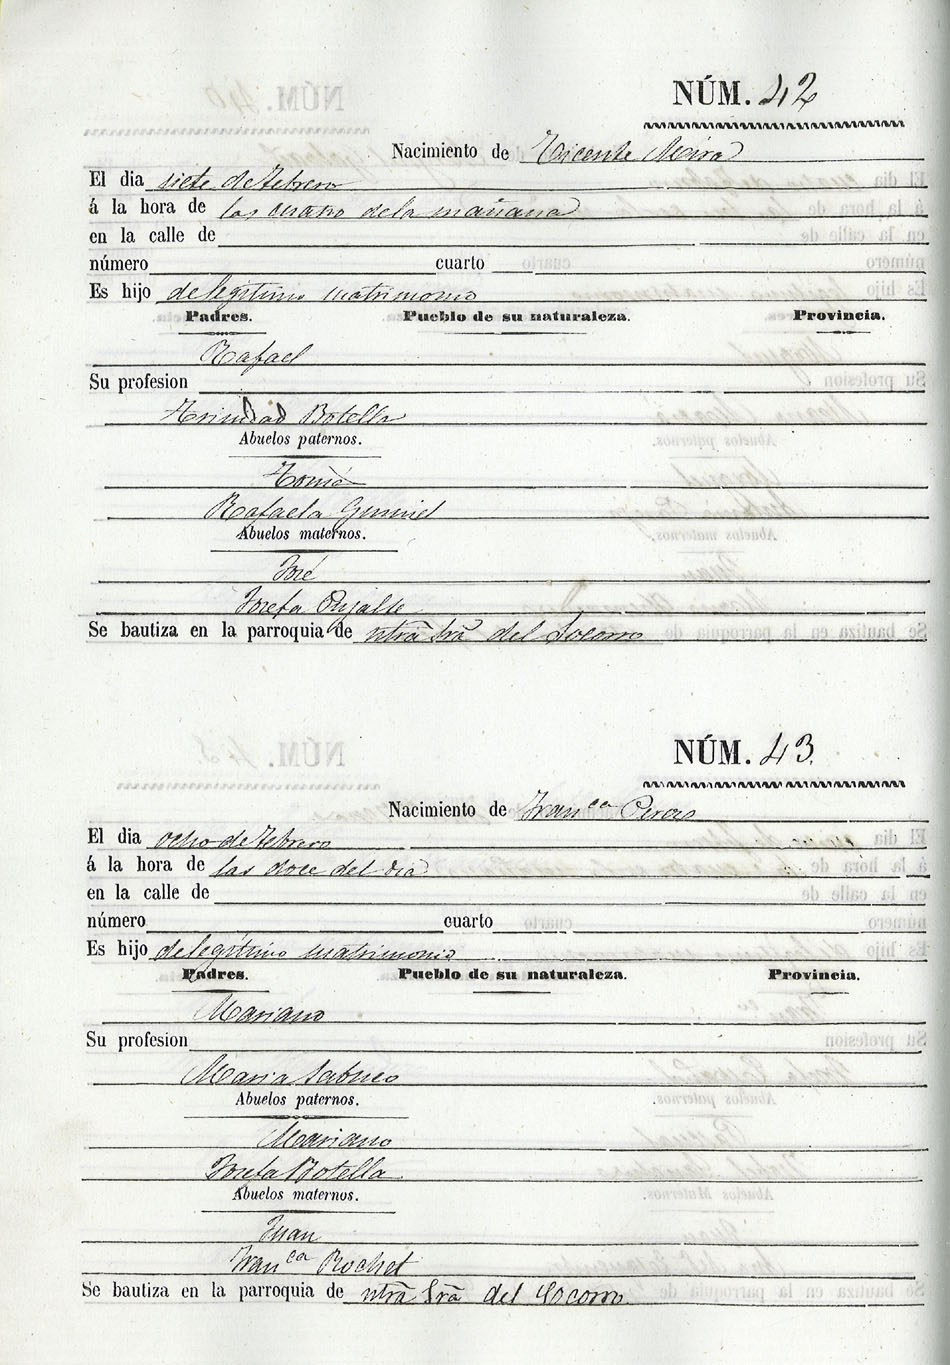 NÚM. 42
Nacimiento de Vicente Mira
El dia siete de Febrero
á la hora de las cuatro de la mañana
en la calle de
número cuarto
Es hijo de legítimo matrimonio
Padres. Pueblo de su naturaleza. Provincia.
Rafael
Su profesion
Trinidad Botella
Abuelos paternos.
Tomás
Rafaela
Abuelos maternos.
José
Josefa Pujalte
Se bautiza en la parroquia de ntrã Srã del Socorro
NÚM. 43.
Nacimiento de Franca
El dia ocho de Febrero
á la hora de las doce del dia
en la calle de
número cuarto
Es hijo de legítimo matrimonio
Padres. Pueblo de su naturaleza. Provincia.
Mariano
Su profesion
Maria Sabuco
Abuelos paternos.
Mariano
Josefa Botella
Abuelos maternos.
Juan
Franca Rochet
Se bautiza en la parroquia de ntrã Srã del Socorro